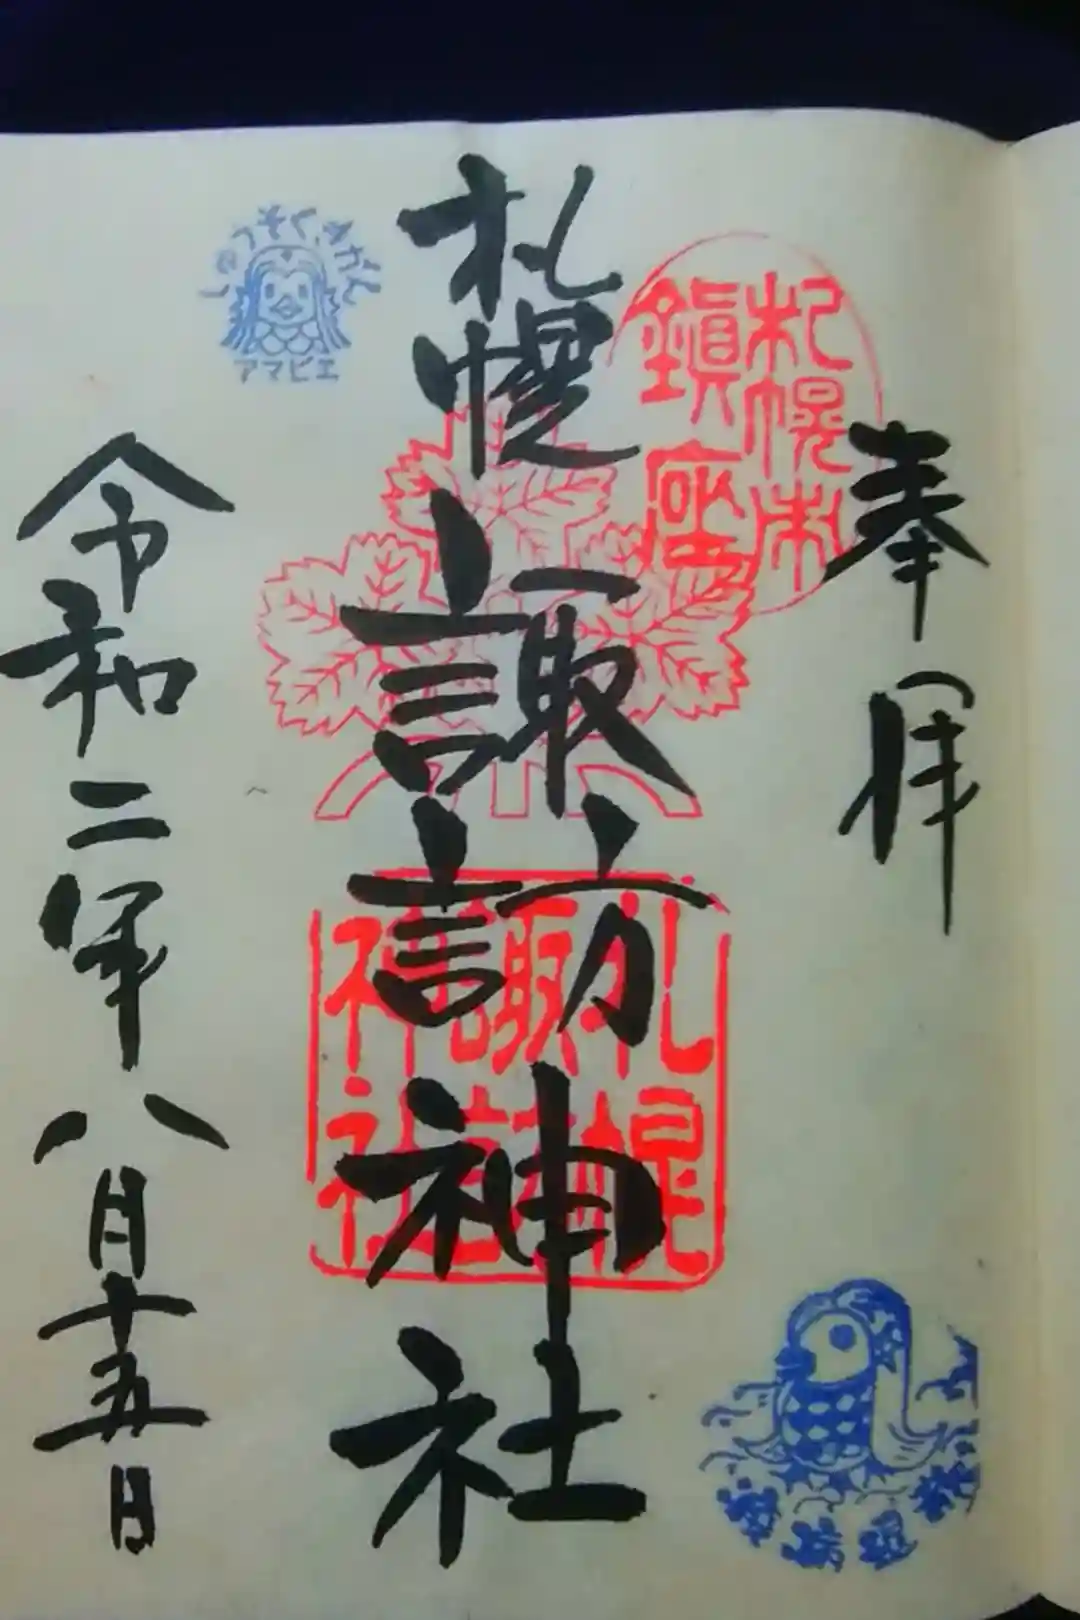 奉拝
札幌市
鎮座
札幌諏訪神社
札幌
諏訪
神社
令和二年八月十五日
しゅうそくきがん
アマビエ